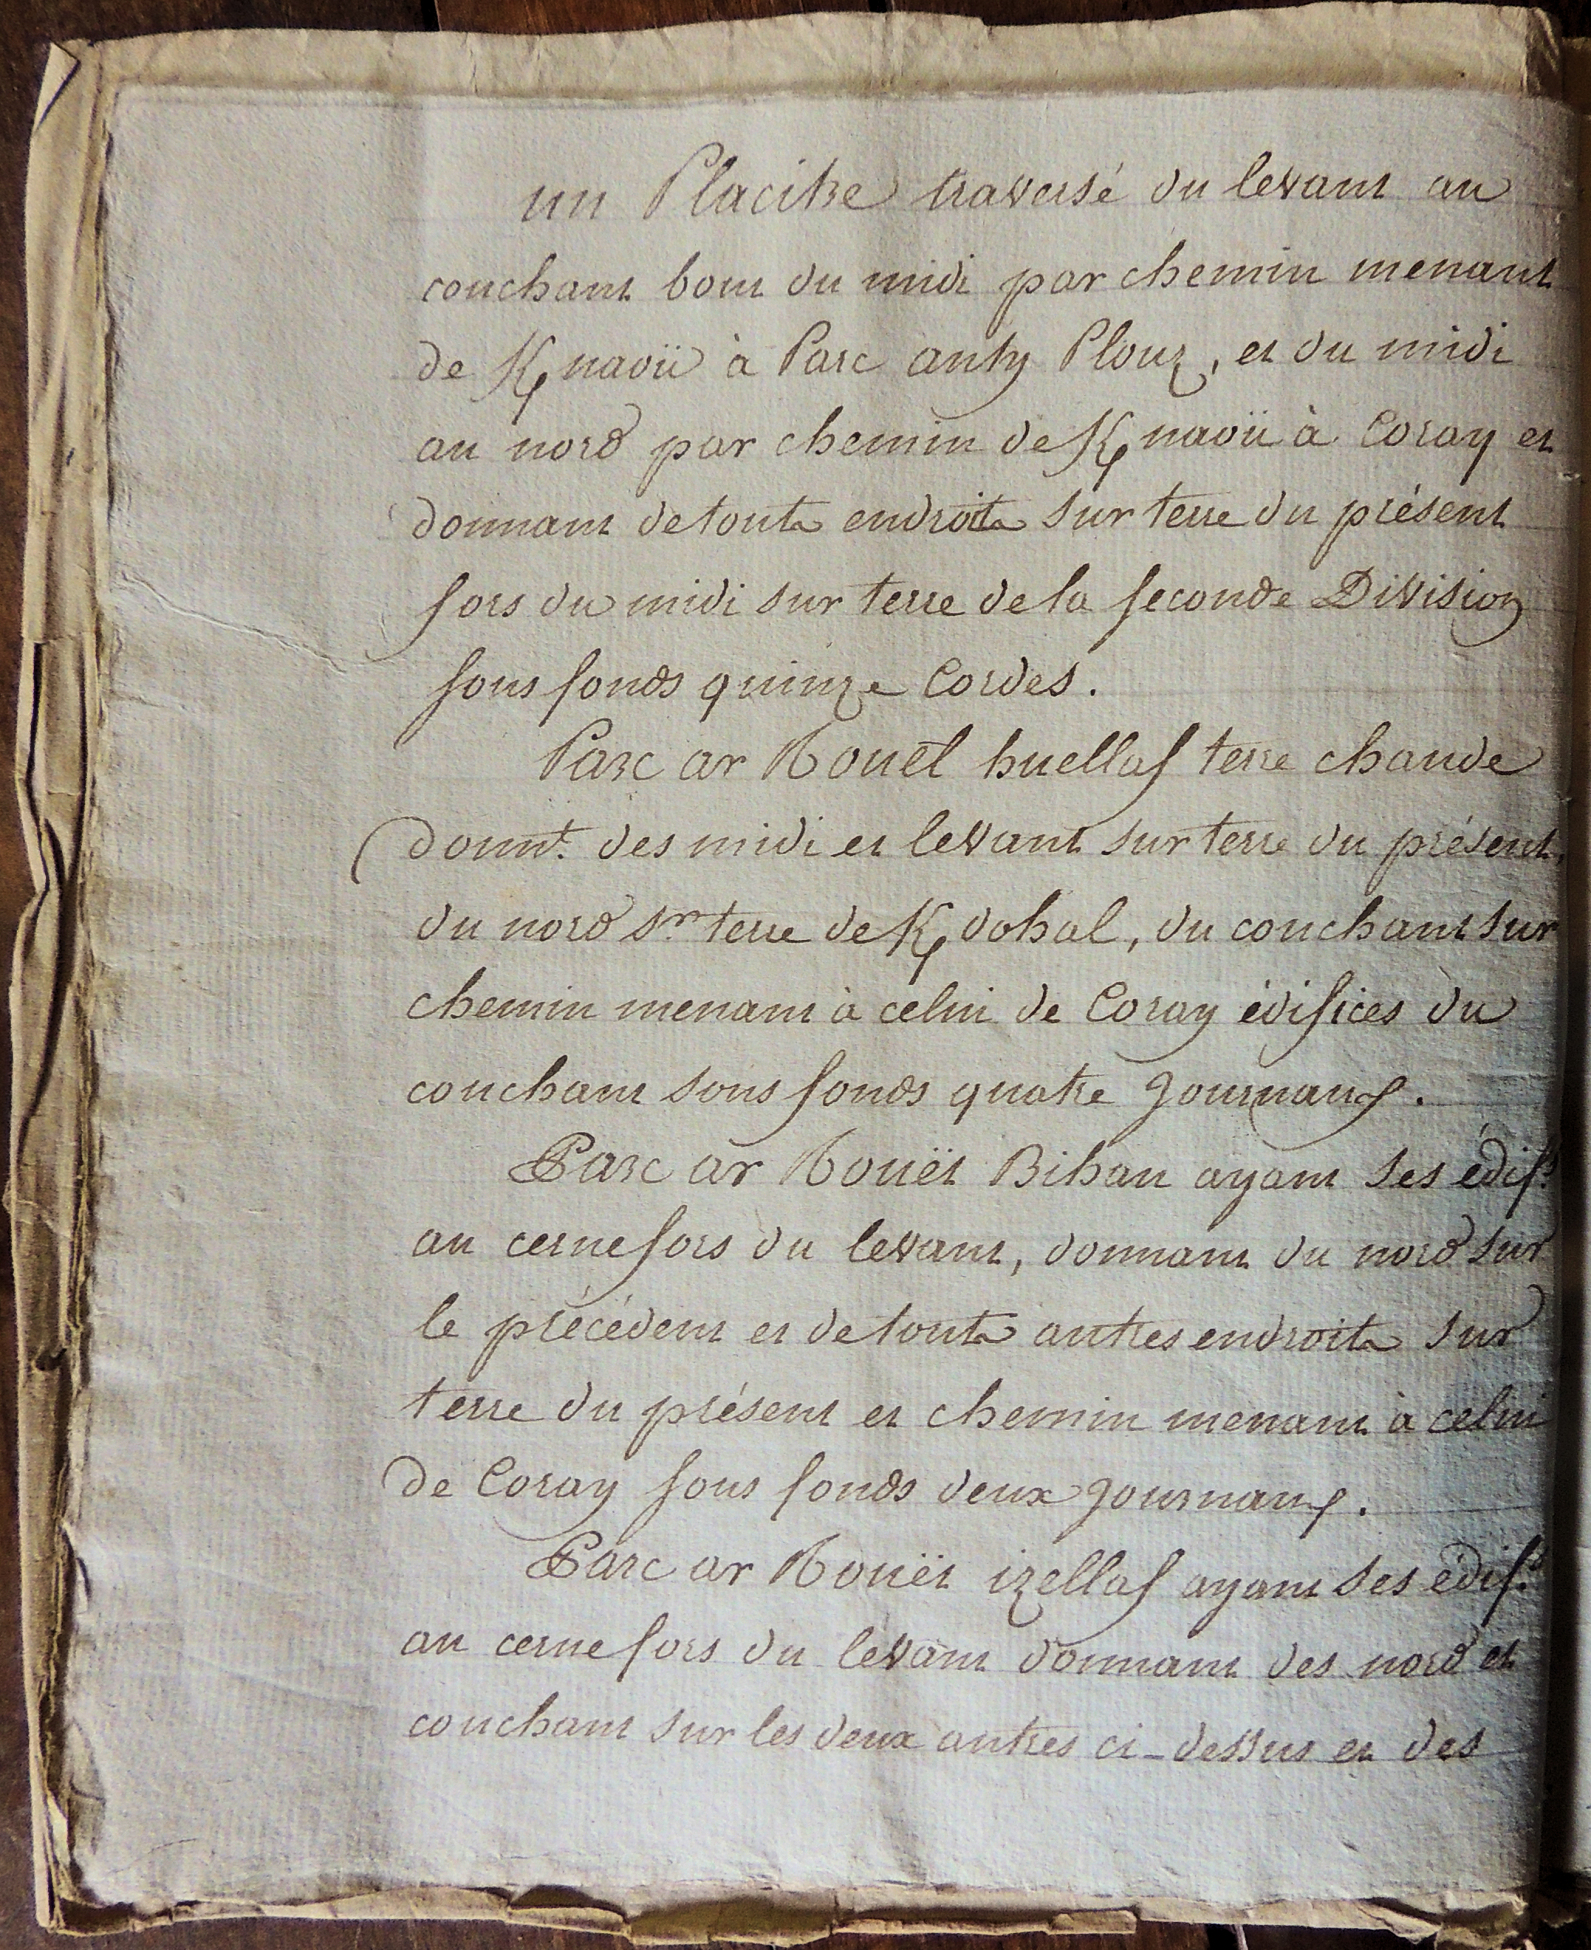 un Placitre traversé du levant au
couchant bout du midi par chemin menant
de K/naoü à Parc anty Plouz, et du midi
au nord par chemin de K/naoü à Coray et
donnant de touts endroits sur terre du présent
fors du midi sur terre de la seconde Division
sous fonds quinze Cordes.
Parc ar Rouet huellaf terre chaude
donnt. des midi et levant sur terre du présent,
du nord sr. terre de K/dohal, du couchant sur
chemin menant à celui de Coray édifices du
couchant sous fonds quatre journaux.
Parc ar Rouët Bihan ayant ses édifs.
au cerne fors du levant, donnant du nord sur
le précédent et de touts autres endroits sur
terre du présent et chemin menant à celui
de Coray sous fonds deux journaux.
Parc ar Rouët izellaf ayant ses édifs.
au cerne fors du levant donnant des nord et
couchant sur les deux autres ci-dessus et des